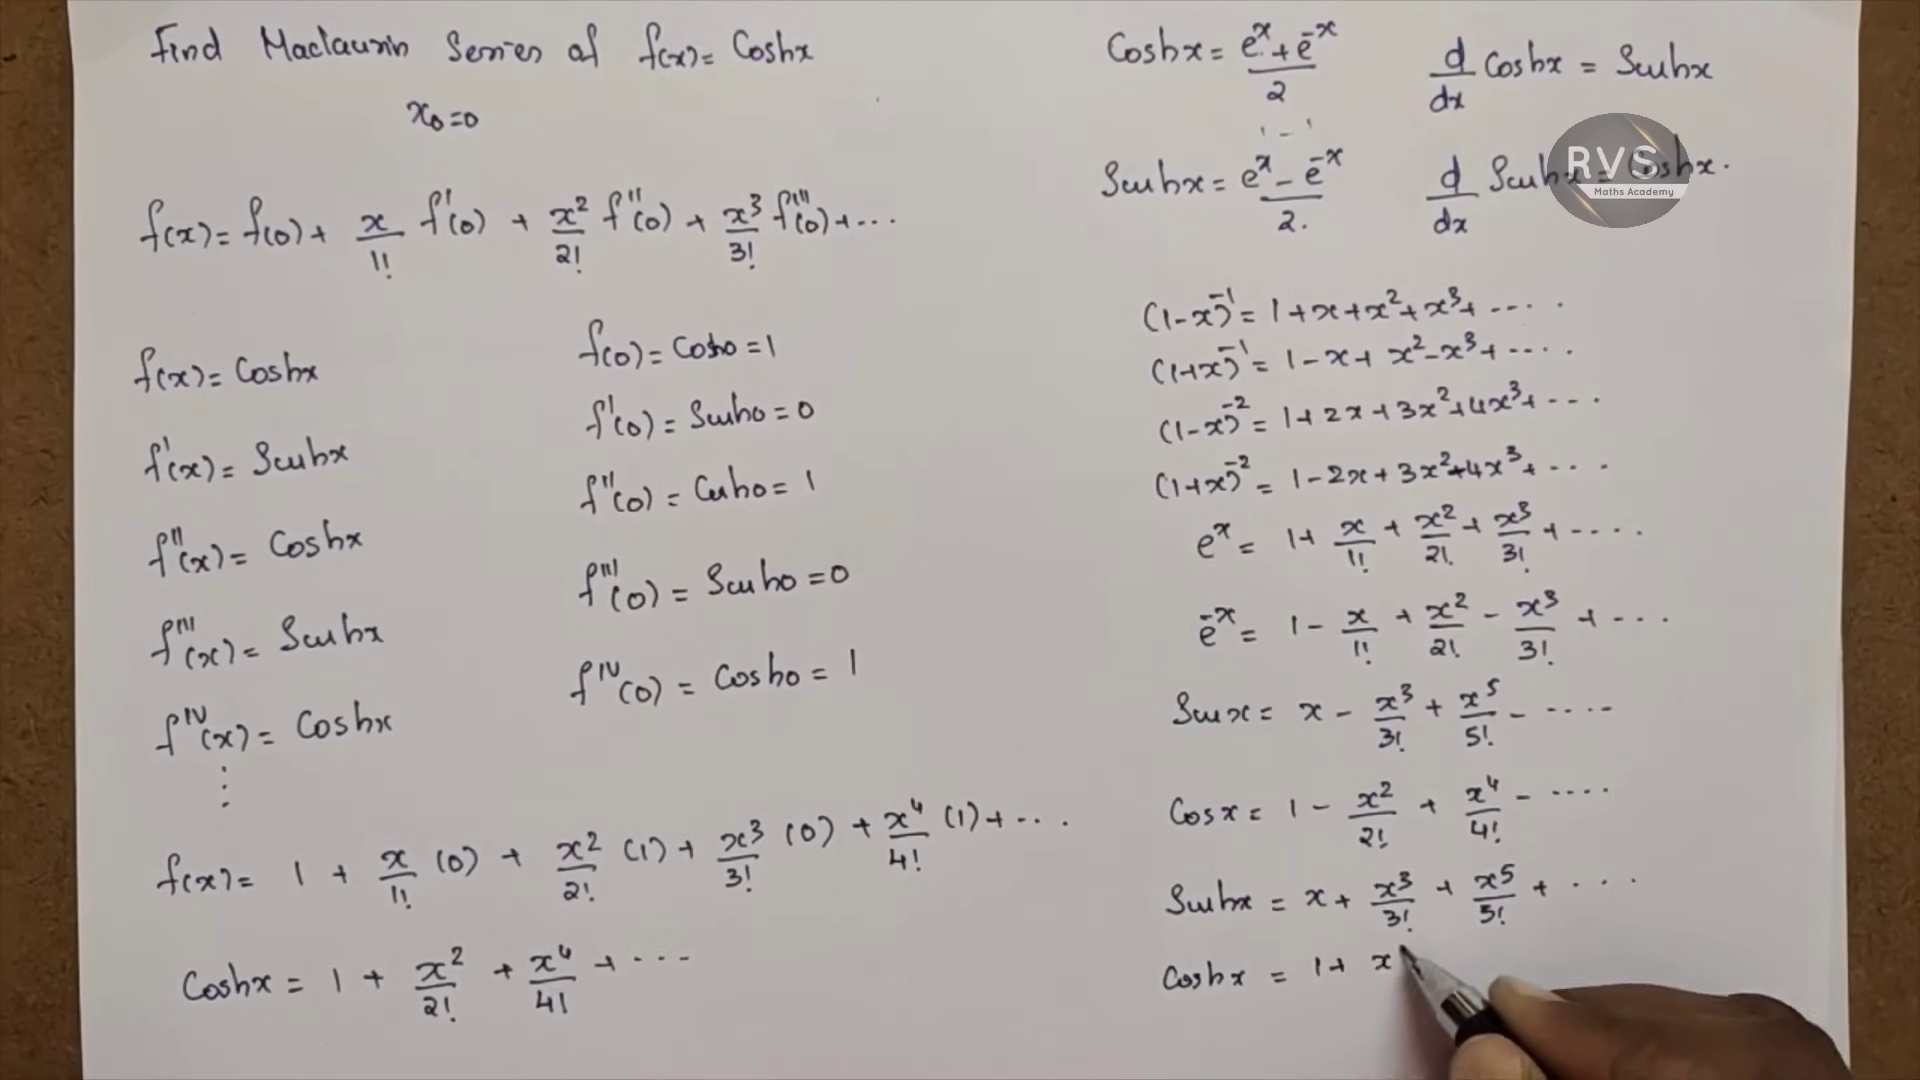 Find Maclaurin Series of f(x) = Coshx
x₀=0
f(x) = f(0) + x/1! f'(0) + x²/2! f''(0) + x³/3! f'''(0) + ...
f(x) = Coshx
f'(x) = Sinhx
f''(x) = Coshx
f'''(x) = Sinhx
f^IV(x) = Coshx
⋮
f(0) = Cosh0 = 1
f'(0) = Sinh0 = 0
f''(0) = Cosh0 = 1
f'''(0) = Sinh0 = 0
f^IV(0) = Cosh0 = 1
f(x) = 1 + x/1! (0) + x²/2! (1) + x³/3! (0) + x⁴/4! (1) + ...
Coshx = 1 + x²/2! + x⁴/4! + ...
Coshx = (e^x + e^-x)/2
d/dx Coshx = Sinhx
Sinhx = (e^x - e^-x)/2.
d/dx Sinhx = Coshx.
RVS
Maths Academy
(1-x)^-1 = 1+x+x²+x³+ ....
(1+x)^-1 = 1-x+x²-x³+ ....
(1-x)^-2 = 1+2x+3x²+4x³+ ...
(1+x)^-2 = 1-2x+3x²-4x³+ ...
e^x = 1+ x/1! + x²/2! + x³/3! + ....
e^-x = 1 - x/1! + x²/2! - x³/3! + ...
Sinx = x - x³/3! + x⁵/5! - ....
Cosx = 1 - x²/2! + x⁴/4! - ....
Sinhx = x + x³/3! + x⁵/5! + ...
Coshx = 1+ x